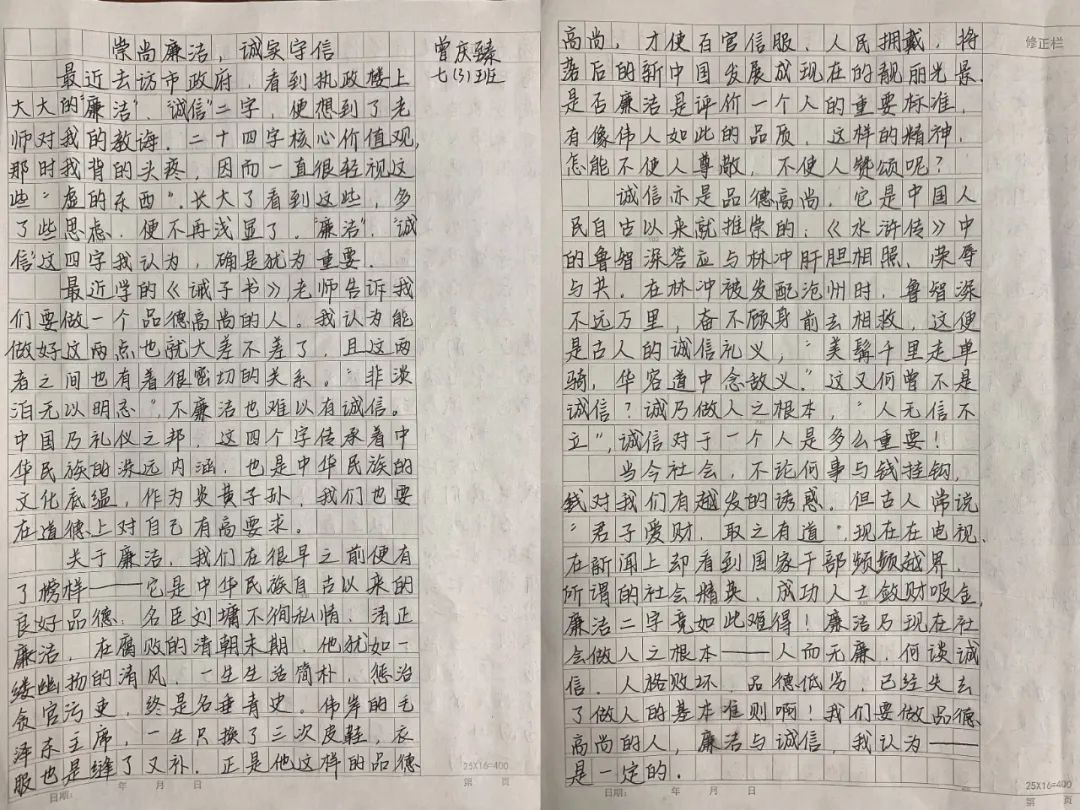 崇尚廉洁，诚实守信
曾庆臻
七（3）班
最近去访市政府，看到执政楼上
大大的“廉洁”、“诚信”二字，便想到了老
师对我的教诲．二十四字核心价值观，
那时我背的头疼，因而一直很轻视这
些“虚的东西”．长大了看到这些，多
了些思虑，便不再浅显了．“廉洁”、“诚
信”这四字我认为，确是犹为重要．
最近学的《诫子书》，老师告诉我
们要做一个品德高尚的人。我认为能
做好这两点也就大差不差了，且这两
者之间也有着很密切的关系。“非淡
泊无以明志”，不廉洁也难以有诚信。
中国乃礼仪之邦，这四个字传承着中
华民族的深远内涵，也是中华民族的
文化底蕴，作为炎黄子孙，我们也要
在道德上对自己有高要求。
关于廉洁，我们在很早之前便有
了榜样——它是中华民族自古以来的
良好品德．名臣刘墉不徇私情，清正
廉洁，在腐败的清朝末期，他犹如一
缕幽扬的清风，一生生活简朴，惩治
贪官污吏，终是名垂青史。伟岸的毛
泽东主席，一生只换了三次皮鞋，衣
服也是缝了又补．正是他这样的品德
25X16=400
日期： 年 月 日 第 页
高尚，才使百官信服，人民拥戴，将
落后的新中国发展成现在的靓丽光景．
修正栏
是否廉洁是评价一个人的重要标准，
有像伟人如此的品质，这样的精神，
怎能不使人尊敬，不使人赞颂呢？
诚信亦是品德高尚，它是中国人
民自古以来就推崇的；《水浒传》中
的鲁智深答应与林冲肝胆相照、荣辱
与共．在林冲被发配沧州时，鲁智深
不远万里，奋不顾身前去相救，这便
是古人的诚信礼义，“美髯千里走单
骑，华容道中念故义．”这又何曾不是
诚信？诚乃做人之根本，“人无信不
立”，诚信对于一个人是多么重要！
当今社会，不论何事与钱挂钩，
钱对我们有越发的诱惑．但古人常说
“君子爱财，取之有道”，现在在电视、
在新闻上却看到国家干部频频越界，
所谓的社会精英，成功人士敛财吸金，
廉洁二字竟如此难得！廉洁乃现在社
会做人之根本——人而无廉，何谈诚
信．人格败坏，品德低劣，已经失去
了做人的基本准则啊！我们要做品德
高尚的人，廉洁与诚信，我认为——
是一定的．
25X16=400
日期： 年 月 日 第 页